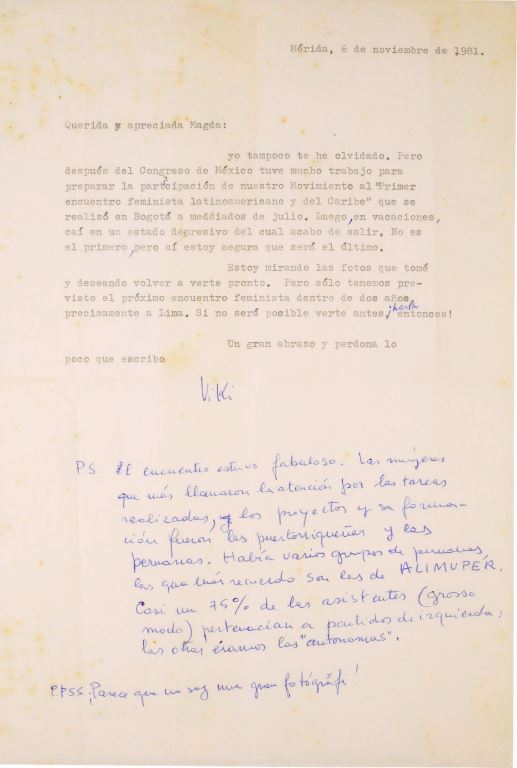 Mérida, 6 de noviembre de 1981.
Querida y apreciada Magda:
yo tampoco te he olvidado. Pero
después del Congreso de México tuve mucho trabajo para
preparar la participación de nuestro Movimiento al "Primer
encuentro feminista latinoamericano y del Caribe" que se
realizó en Bogotá a meddiados de julio. Luego, en vacaciones,
caí en un estado depresivo del cual acabo de salir. No es
el primero, pero sí estoy segura que será el último.
Estoy mirando las fotos que tomé
y deseando volver a verte pronto. Pero sólo tenemos pre-
visto el próximo encuentro feminista dentro de dos años,
precisamente a Lima. Si no será posible verte antes, ¡hasta entonces!
Un gran abrazo y perdona lo
poco que escribo
Viki
P.S. El encuentro estuvo fabuloso. Las mujeres
que más llamaron la atención por las tareas
realizadas, y los proyectos y su forma-
ción fueron las puertorriqueñas y las
peruanas. Había varios grupos de peruanas,
las que más recuerdo son las de ALIMUPER.
Casi un 75% de las asistentes (grosso
modo) pertenecían a partidos de izquierda;
las otras éramos las "autónomas".
P.PSS. ¡Parece que no soy una gran fotógrafe!